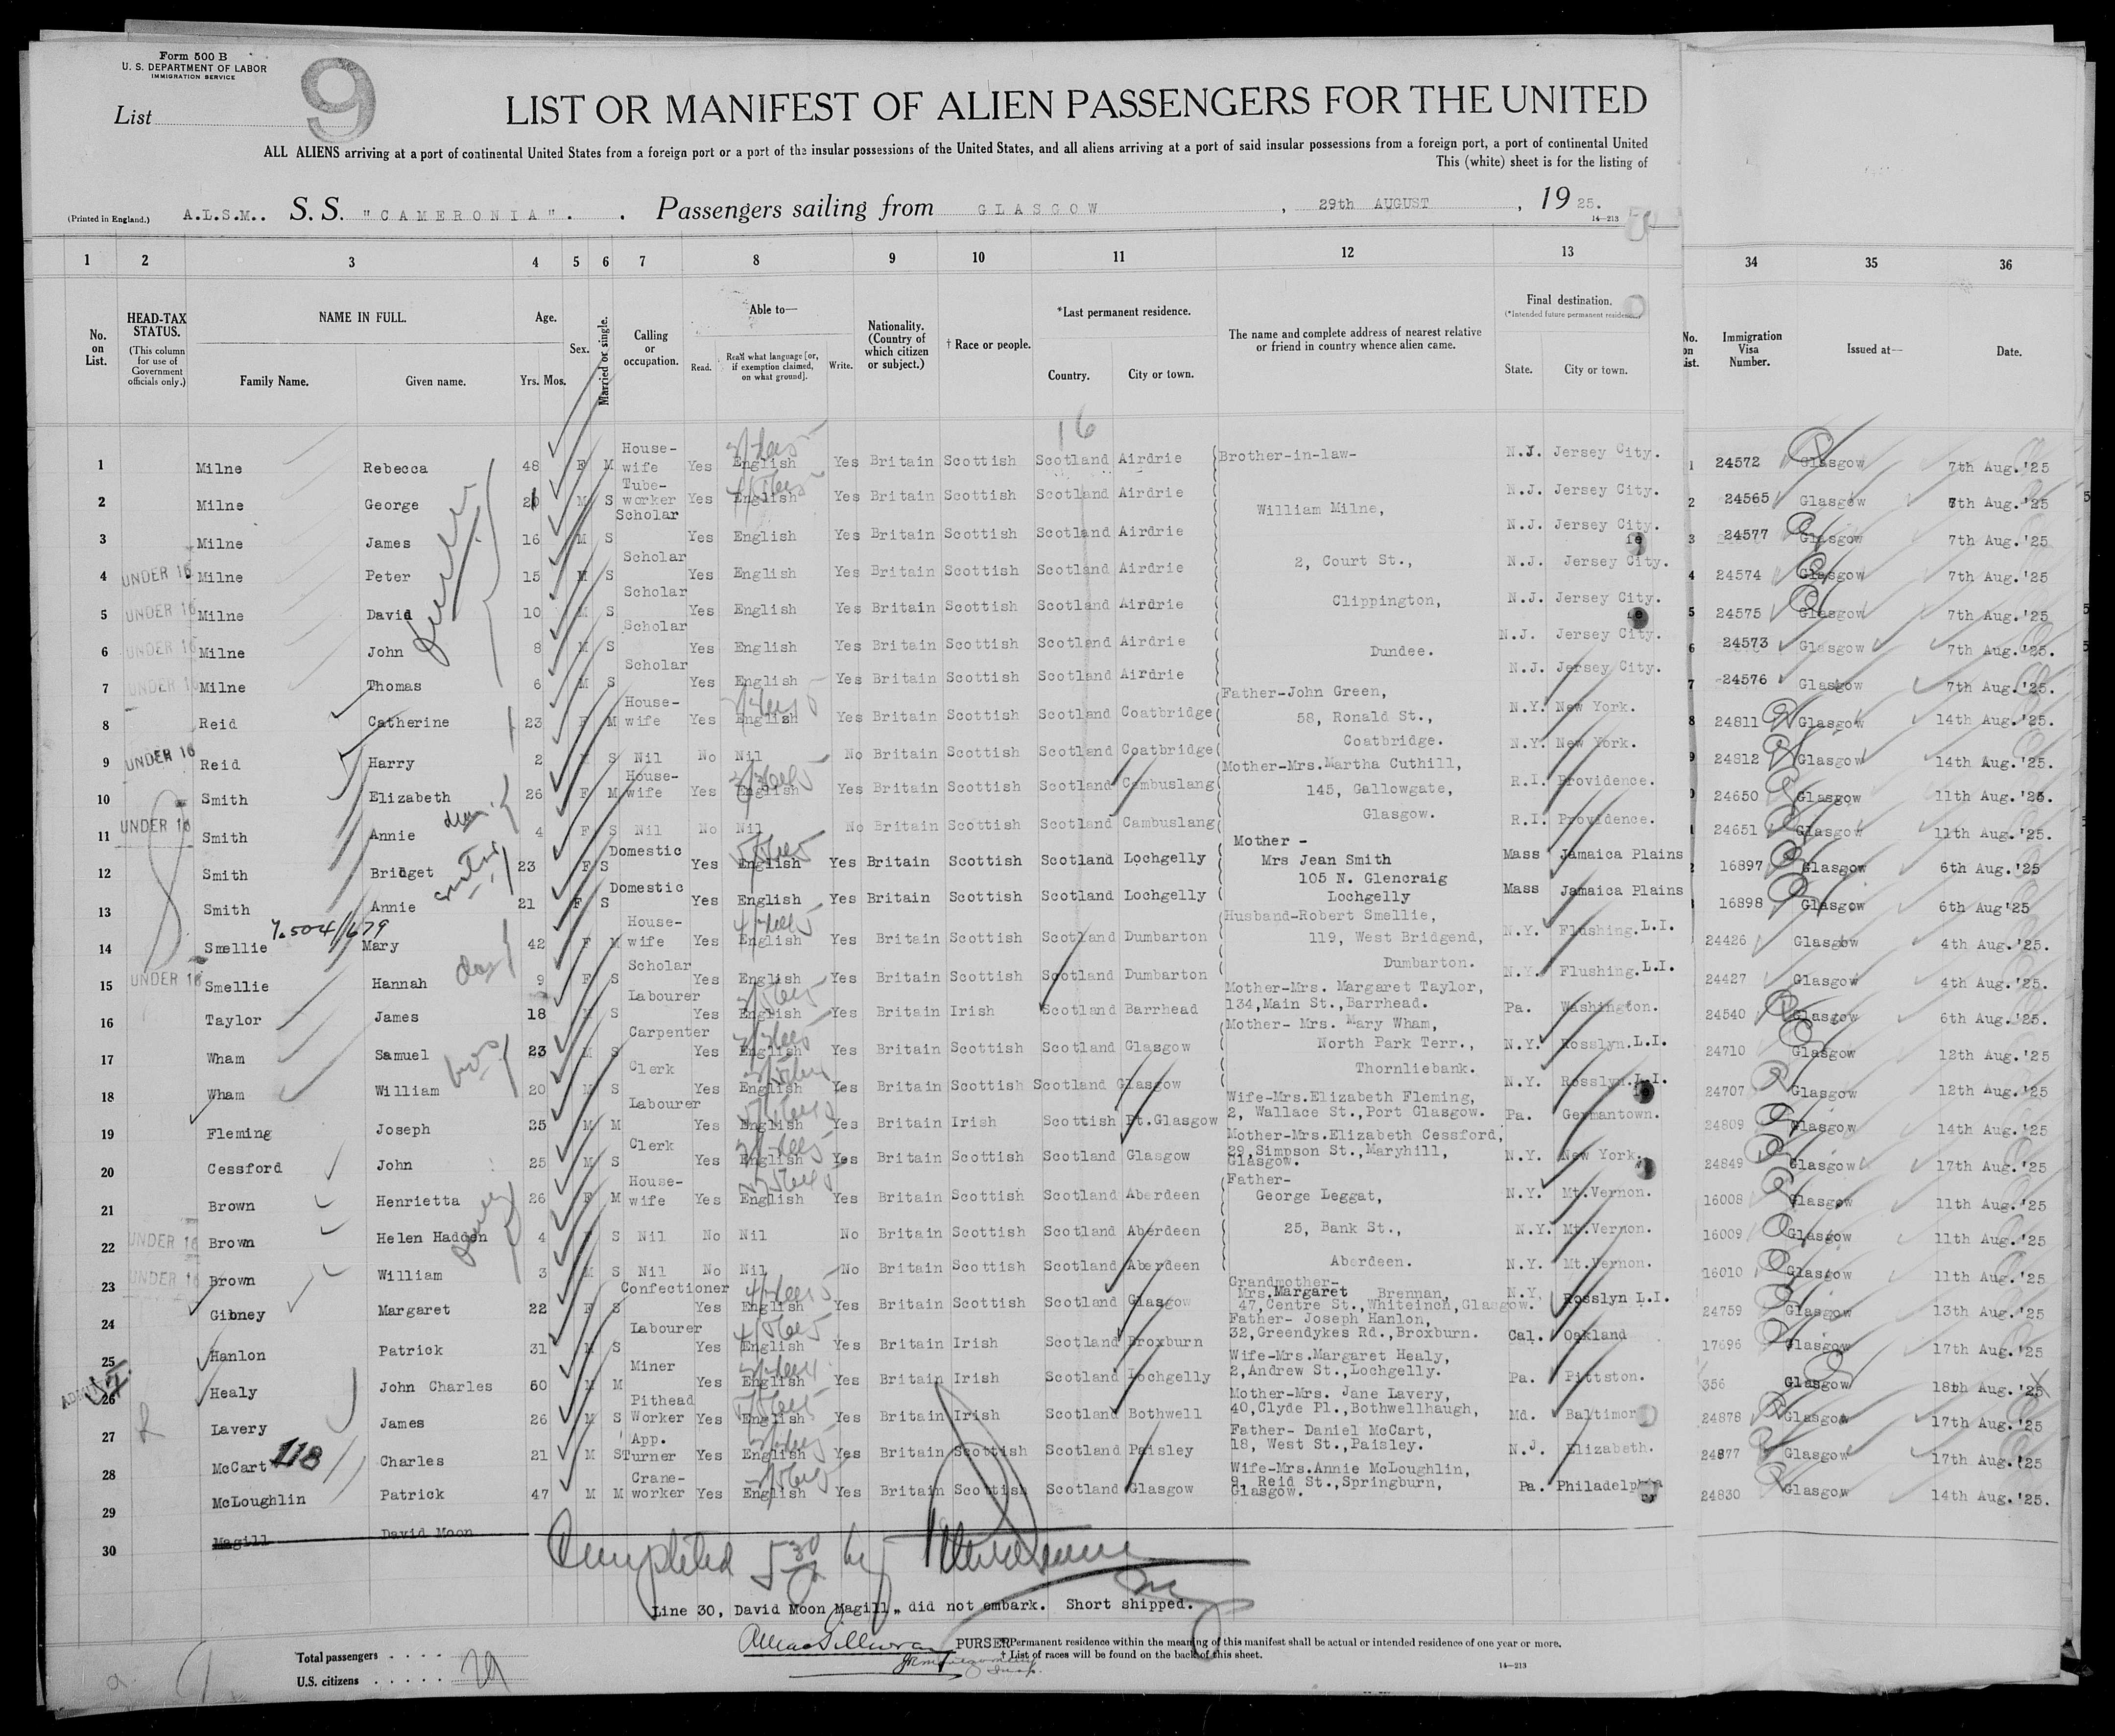 Form 500 B
U. S. DEPARTMENT OF LABOR
IMMIGRATION SERVICE
List
9
LIST OR MANIFEST OF ALIEN PASSENGERS FOR THE UNITED
ALL ALIENS arriving at a port of continental United States from a foreign port or a port of the insular possessions of the United States, and all aliens arriving at a port of said insular possessions from a foreign port, a port of continental United
This (white) sheet is for the listing of
(Printed in England.) A.L.S.M.. S. S. "CAMERONIA". Passengers sailing from GLASGOW, 29th AUGUST, 19 25.
14—213
1 2 3 4 5 6 7 8 9 10 11 12 13 34 35 36
No. on List. HEAD-TAX STATUS. (This column for use of Government officials only.) NAME IN FULL. Family Name. Given name. Age. Yrs. Mos. Sex. Married or single. Calling or occupation. Able to— Read. Read what language [or, if exemption claimed, on what ground]. Write. Nationality. (Country of which citizen or subject.) † Race or people. *Last permanent residence. Country. City or town. The name and complete address of nearest relative or friend in country whence alien came. Final destination. (*Intended future permanent residence.) State. City or town. No. on List. Immigration Visa Number. Issued at— Date.
16
1 Milne Rebecca 48 F M House-wife Yes English Yes Britain Scottish Scotland Airdrie Brother-in-law- N.J. Jersey City. 1 24572 Glasgow 7th Aug.'25
2 Milne George M S Tube-worker Yes English Yes Britain Scottish Scotland Airdrie William Milne, N.J. Jersey City. 2 24565 Glasgow 7th Aug.'25
3 Milne James 16 M S Scholar Yes English Yes Britain Scottish Scotland Airdrie N.J. Jersey City. 3 24577 Glasgow 7th Aug.'25
4 UNDER 16 Milne Peter 15 M S Scholar Yes English Yes Britain Scottish Scotland Airdrie 2, Court St., N.J. Jersey City. 4 24574 Glasgow 7th Aug.'25
5 UNDER 16 Milne David 10 M S Scholar Yes English Yes Britain Scottish Scotland Airdrie Clippington, N.J. Jersey City. 5 24575 Glasgow 7th Aug.'25
6 UNDER 16 Milne John 8 M S Scholar Yes English Yes Britain Scottish Scotland Airdrie Dundee. N.J. Jersey City. 6 24573 Glasgow 7th Aug.'25.
7 UNDER 16 Milne Thomas 6 M S Scholar Yes English Yes Britain Scottish Scotland Airdrie N.J. Jersey City. 7 24576 Glasgow 7th Aug.'25.
8 Reid Catherine 23 F M House-wife Yes English Yes Britain Scottish Scotland Coatbridge Father-John Green, 58, Ronald St., N.Y. New York. 8 24811 Glasgow 14th Aug.'25.
9 UNDER 16 Reid Harry 2 M S Nil No Nil No Britain Scottish Scotland Coatbridge Coatbridge. N.Y. New York. 9 24812 Glasgow 14th Aug.'25.
10 Smith Elizabeth 26 F M House-wife Yes English Yes Britain Scottish Scotland Cambuslang Mother-Mrs.Martha Cuthill, 145, Gallowgate, R.I. Providence. 24650 Glasgow 11th Aug.'25.
11 UNDER 16 Smith Annie 4 F S Nil No Nil No Britain Scottish Scotland Cambuslang Glasgow. R.I. Providence. 24651 Glasgow 11th Aug.'25.
12 Smith Bridget 23 F S Domestic Yes English Yes Britain Scottish Scotland Lochgelly Mother - Mrs Jean Smith Mass Jamaica Plains 16897 Glasgow 6th Aug.'25
13 Smith Annie 21 F S Domestic Yes English Yes Britain Scottish Scotland Lochgelly 105 N. Glencraig Lochgelly Mass Jamaica Plains 16898 Glasgow 6th Aug'25
14 Smellie Mary 42 F M House-wife Yes English Yes Britain Scottish Scotland Dumbarton Husband-Robert Smellie, 119, West Bridgend, N.Y. Flushing.L.I. 24426 Glasgow 4th Aug.'25.
15 UNDER 16 Smellie Hannah 9 F S Scholar Yes English Yes Britain Scottish Scotland Dumbarton Dumbarton. N.Y. Flushing.L.I. 24427 Glasgow 4th Aug.'25.
16 Taylor James 18 M S Labourer Yes English Yes Britain Irish Scotland Barrhead Mother-Mrs. Margaret Taylor, 134,Main St.,Barrhead. Pa. Washington. 24540 Glasgow 6th Aug.'25.
17 Wham Samuel 23 M S Carpenter Yes English Yes Britain Scottish Scotland Glasgow Mother- Mrs. Mary Wham, North Park Terr., N.Y. Rosslyn.L.I. 24710 Glasgow 12th Aug.'25
18 Wham William 20 M S Clerk Yes English Yes Britain Scottish Scotland Glasgow Thornliebank. N.Y. Rosslyn.L.I. 24707 Glasgow 12th Aug.'25
19 Fleming Joseph 25 M M Labourer Yes English Yes Britain Irish Scottish Pt.Glasgow Wife-Mrs.Elizabeth Fleming, 2, Wallace St.,Port Glasgow. Pa. Germantown. 24809 Glasgow 14th Aug.'25
20 Cessford John 25 M S Clerk Yes English Yes Britain Scottish Scotland Glasgow Mother-Mrs.Elizabeth Cessford, 29,Simpson St.,Maryhill, Glasgow. N.Y. New York. 24849 Glasgow 17th Aug.'25
21 Brown Henrietta 26 F M House-wife Yes English Yes Britain Scottish Scotland Aberdeen Father- George Leggat, N.Y. Mt.Vernon. 16008 Glasgow 11th Aug.'25
22 UNDER 16 Brown Helen Hadden 4 F S Nil No Nil No Britain Scottish Scotland Aberdeen 25, Bank St., N.Y. Mt.Vernon. 16009 Glasgow 11th Aug.'25
23 UNDER 16 Brown William 3 M S Nil No Nil No Britain Scottish Scotland Aberdeen Aberdeen. N.Y. Mt.Vernon. 16010 Glasgow 11th Aug.'25
24 Gibney Margaret 22 F S Confectioner Yes English Yes Britain Scottish Scotland Glasgow Grandmother- Mrs.Margaret Brennan, 47,Centre St.,Whiteinch,Glasgow. N.Y. Rosslyn L.I. 24759 Glasgow 13th Aug.'25
25 Hanlon Patrick 31 M S Labourer Yes English Yes Britain Irish Scotland Broxburn Father- Joseph Hanlon, 32,Greendykes Rd.,Broxburn. Cal. Oakland 17696 Glasgow 17th Aug.'25
26 Healy John Charles 50 M M Miner Yes English Yes Britain Irish Scotland Lochgelly Wife-Mrs.Margaret Healy, 2,Andrew St.,Lochgelly. Pa. Pittston. 356 Glasgow 18th Aug.'25
27 Lavery James 26 M S Pithead Worker Yes English Yes Britain Irish Scotland Bothwell Mother-Mrs. Jane Lavery, 40,Clyde Pl.,Bothwellhaugh, Md. Baltimor 24878 Glasgow 17th Aug.'25
28 McCart 118 Charles 21 M S App. Turner Yes English Yes Britain Scottish Scotland Paisley Father- Daniel McCart, 18, West St.,Paisley. N.J. Elizabeth. 24877 Glasgow 17th Aug.'25
29 McLoughlin Patrick 47 M M Crane-worker Yes English Yes Britain Scottish Scotland Glasgow Wife-Mrs.Annie McLoughlin, 9, Reid St.,Springburn, Glasgow. Pa. Philadelphia 24830 Glasgow 14th Aug.'25.
30 Magill David Moon
Completed 5 30 by
Line 30, David Moon Magill, did not embark. Short shipped.
PURSER
* Permanent residence within the meaning of this manifest shall be actual or intended residence of one year or more.
† List of races will be found on the back of this sheet.
Total passengers . . . .
U.S. citizens . . . . .
29
14—213